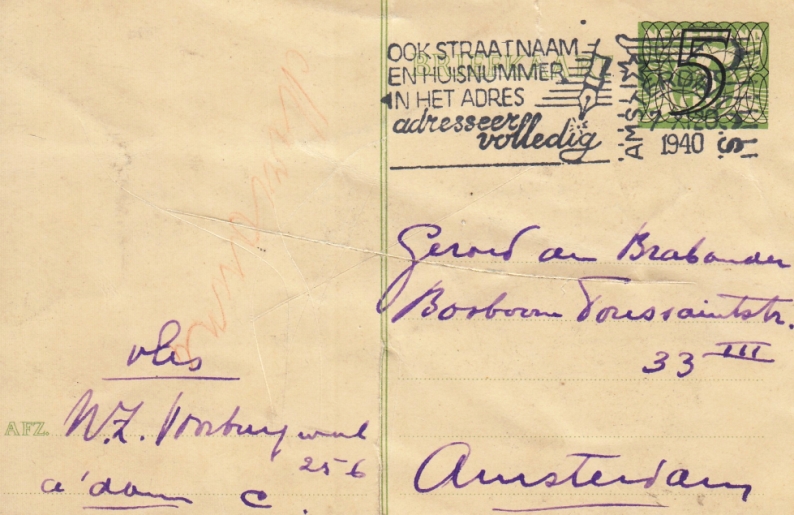 OOK STRAATNAAM
EN HUISNUMMER
IN HET ADRES
adresseer
volledig
BRIEFKAART
5
AMSTERDAM
1940
Gerard den Brabander
Bosboom Toussaintstr.
33 III
Amsterdam
vles
AFZ. N.Z. Voorburgwal
256
a'dam C.